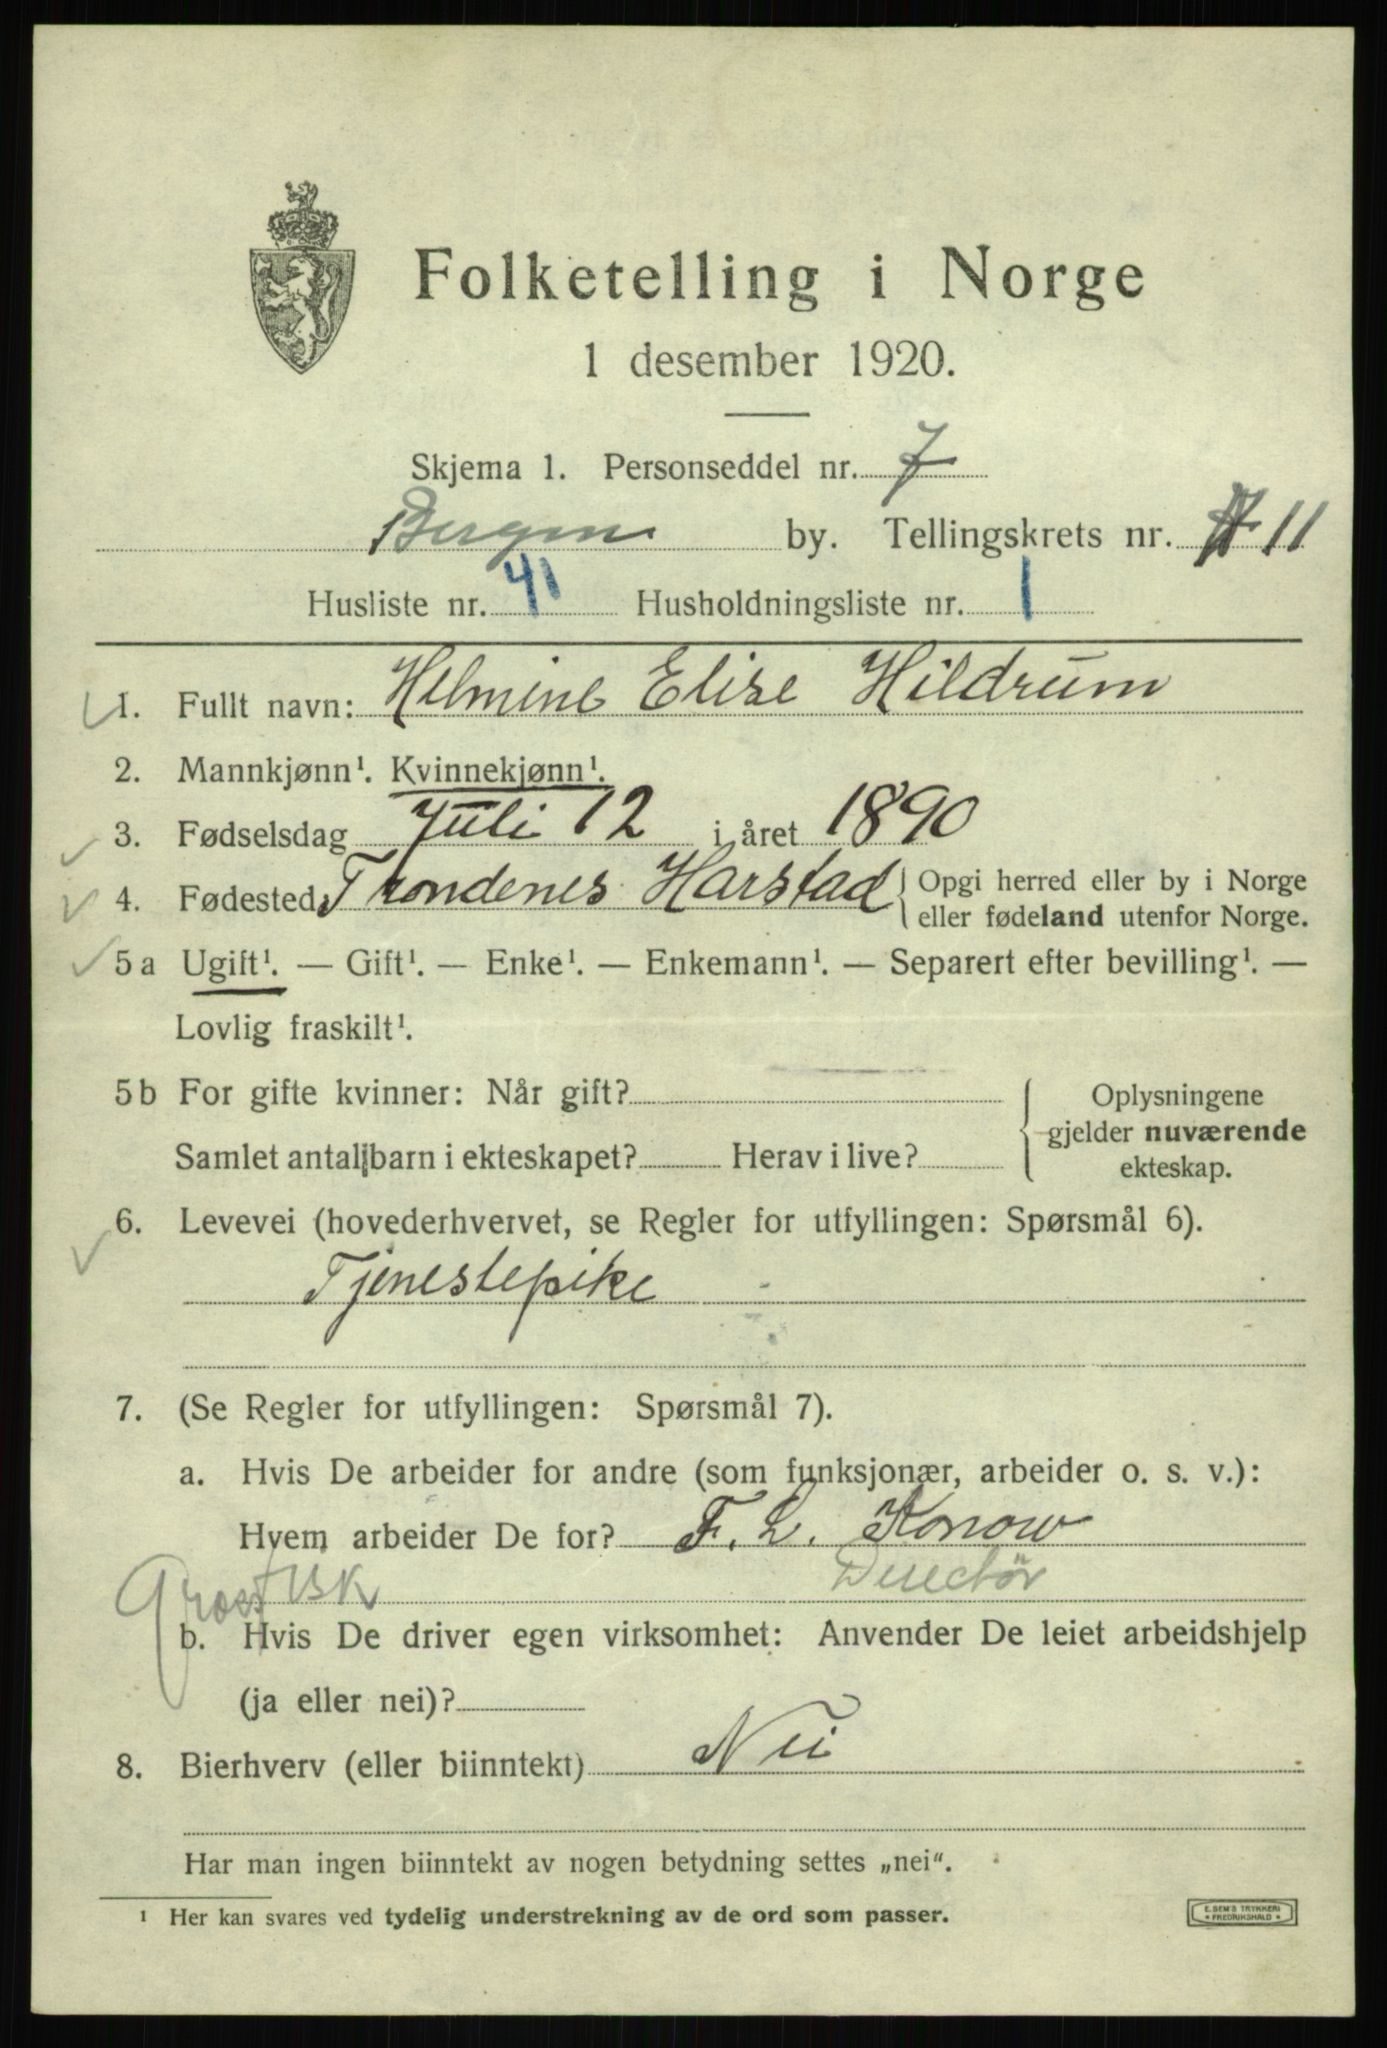 Folketelling i Norge
1 desember 1920.
Skjema 1. Personseddel nr. 7
Bergen by. Tellingskrets nr. 11
Husliste nr. 41 Husholdningsliste nr. 1
1. Fullt navn: Helmine Elise Hildrum
2. Mannkjønn¹. Kvinnekjønn¹.
3. Fødselsdag Juli 12 i året 1890
4. Fødested Trondenes Harstad { Opgi herred eller by i Norge
eller fødeland utenfor Norge.
5 a Ugift¹. — Gift¹. — Enke¹. — Enkemann¹. — Separert efter bevilling¹. —
Lovlig fraskilt¹.
5 b For gifte kvinner: Når gift? { Oplysningene
gjelder nuværende
Samlet antal barn i ekteskapet? Herav i live?
ekteskap.
6. Levevei (hovederhvervet, se Regler for utfyllingen: Spørsmål 6).
Tjenestepike
7. (Se Regler for utfyllingen: Spørsmål 7).
a. Hvis De arbeider for andre (som funksjonær, arbeider o. s. v.):
Hvem arbeider De for? F. L. Konow
Direktør
b. Hvis De driver egen virksomhet: Anvender De leiet arbeidshjelp
(ja eller nei)?
8. Bierhverv (eller biinntekt) Nei
Har man ingen biinntekt av nogen betydning settes „nei“.
¹ Her kan svares ved tydelig understrekning av de ord som passer.
E. SEM'S TRYKKERI
• FREDRIKSHALD •